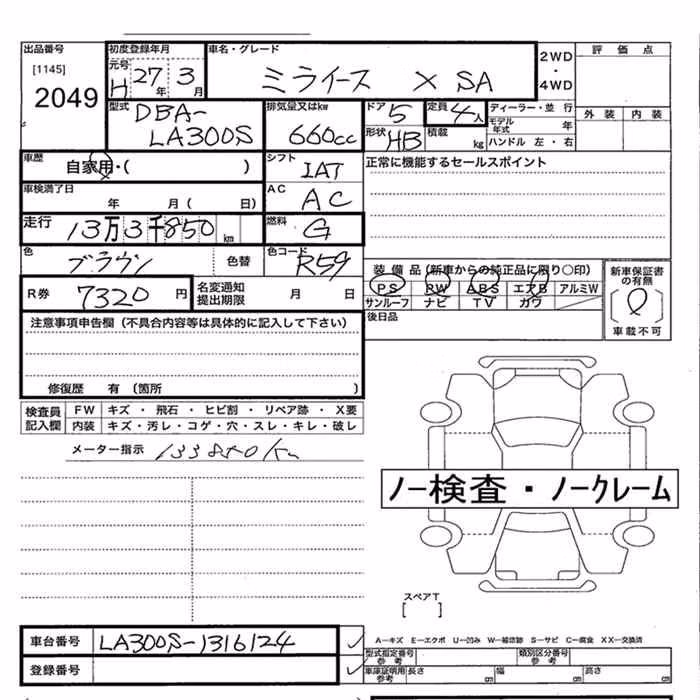 出品番号
[1145]
2049
初度登録年月
元号
H 27年 3月
車名・グレード
ミライース X SA
2WD
・
4WD
評価点
外装 内装
型式
DBA-
LA300S
排気量又はkw
660cc
ドア
5
定員
4人
形状
HB
積載
kg
ディーラー・並行
モデル年式 年
ハンドル 左・右
車歴
自家用・( )
シフト
IAT
正常に機能するセールスポイント
車検満了日
年 月( 日)
AC
AC
走行
13万3千850km
燃料
G
色
ブラウン
色替
色コード
R59
装備品(新車からの純正品に限り○印)
PS PW ABS エアB アルミW
サンルーフ ナビ TV カワ
新車保証書の有無
( )
車載不可
R券
7320円
名変通知
提出期限
月 日
後日品
注意事項申告欄(不具合内容等は具体的に記入して下さい)
修復歴 有(箇所 )
検査員
記入欄
FW キズ・飛石・ヒビ割・リペア跡・X要
内装 キズ・汚レ・コゲ・穴・スレ・キレ・破レ
メーター指示 133850km
ノー検査・ノークレーム
スペアT
[ ]
車台番号 LA300S-1316124
登録番号
A-キズ E-エクボ U-凹ミ W-補修跡 S-サビ C-腐食 XX-交換済
型式指定番号
参考
類別区分番号
参考
車庫証明用
参考
長さ cm 幅 cm 高さ cm